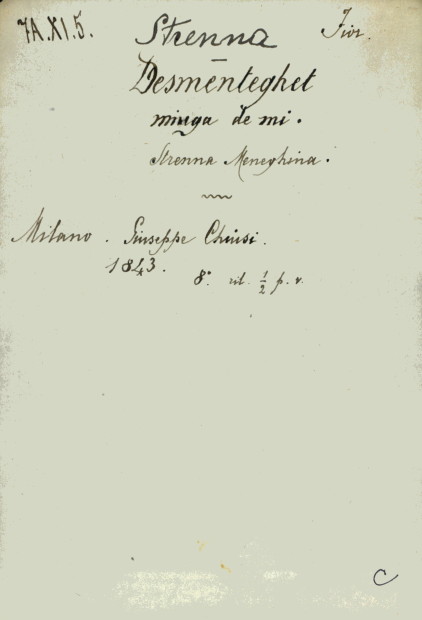 7A.XI.5. Strenna Fior.
Desmenteghet
minga de mi.
Strenna Meneghina.
Milano. Giuseppe Chiusi.
1843. 8° ril. ½ p. v.
C